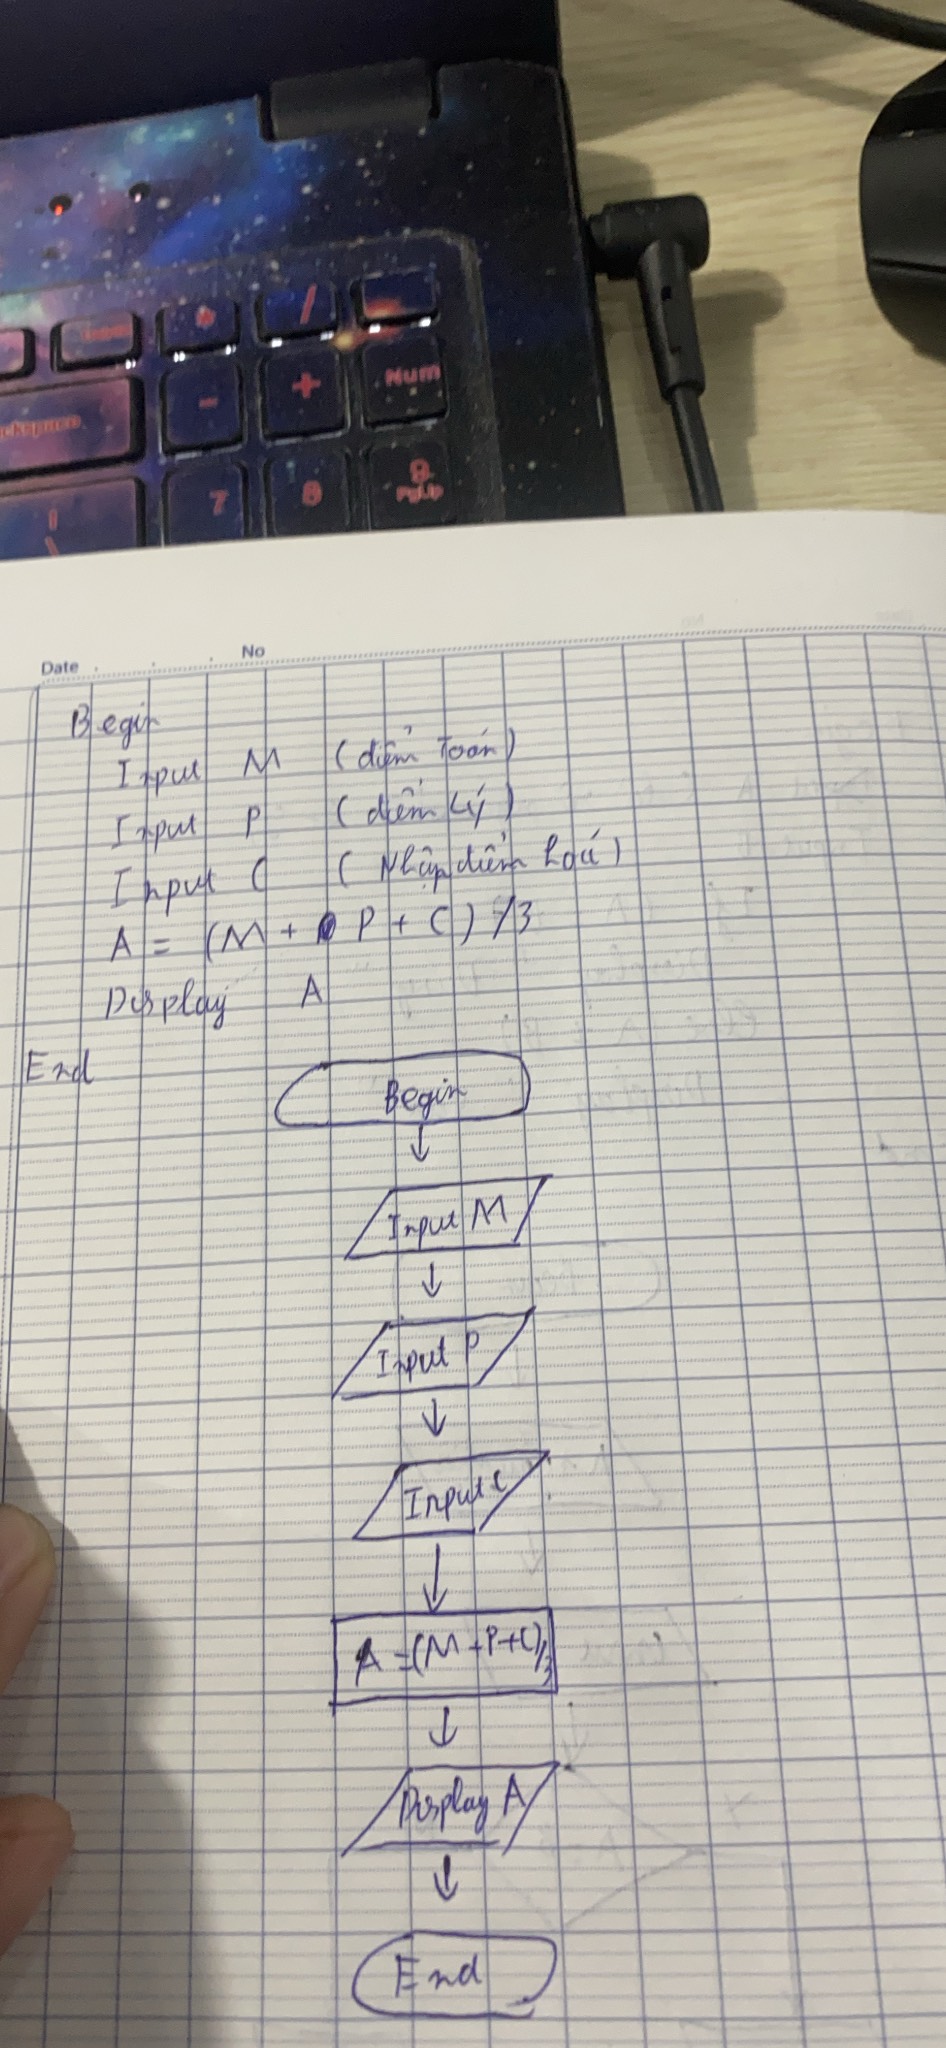 *
/
-
+
Num
ckspace
7
8
9
PgUp
|
\
Date
No
Begin
Input M (điểm Toán)
Input P (điểm Lý)
Input C (Nhập điểm hoá)
A = (M + P + C) /3
Display A
End
Begin
Input M
Input P
Input C
A = (M + P + C)/3
Display A
End